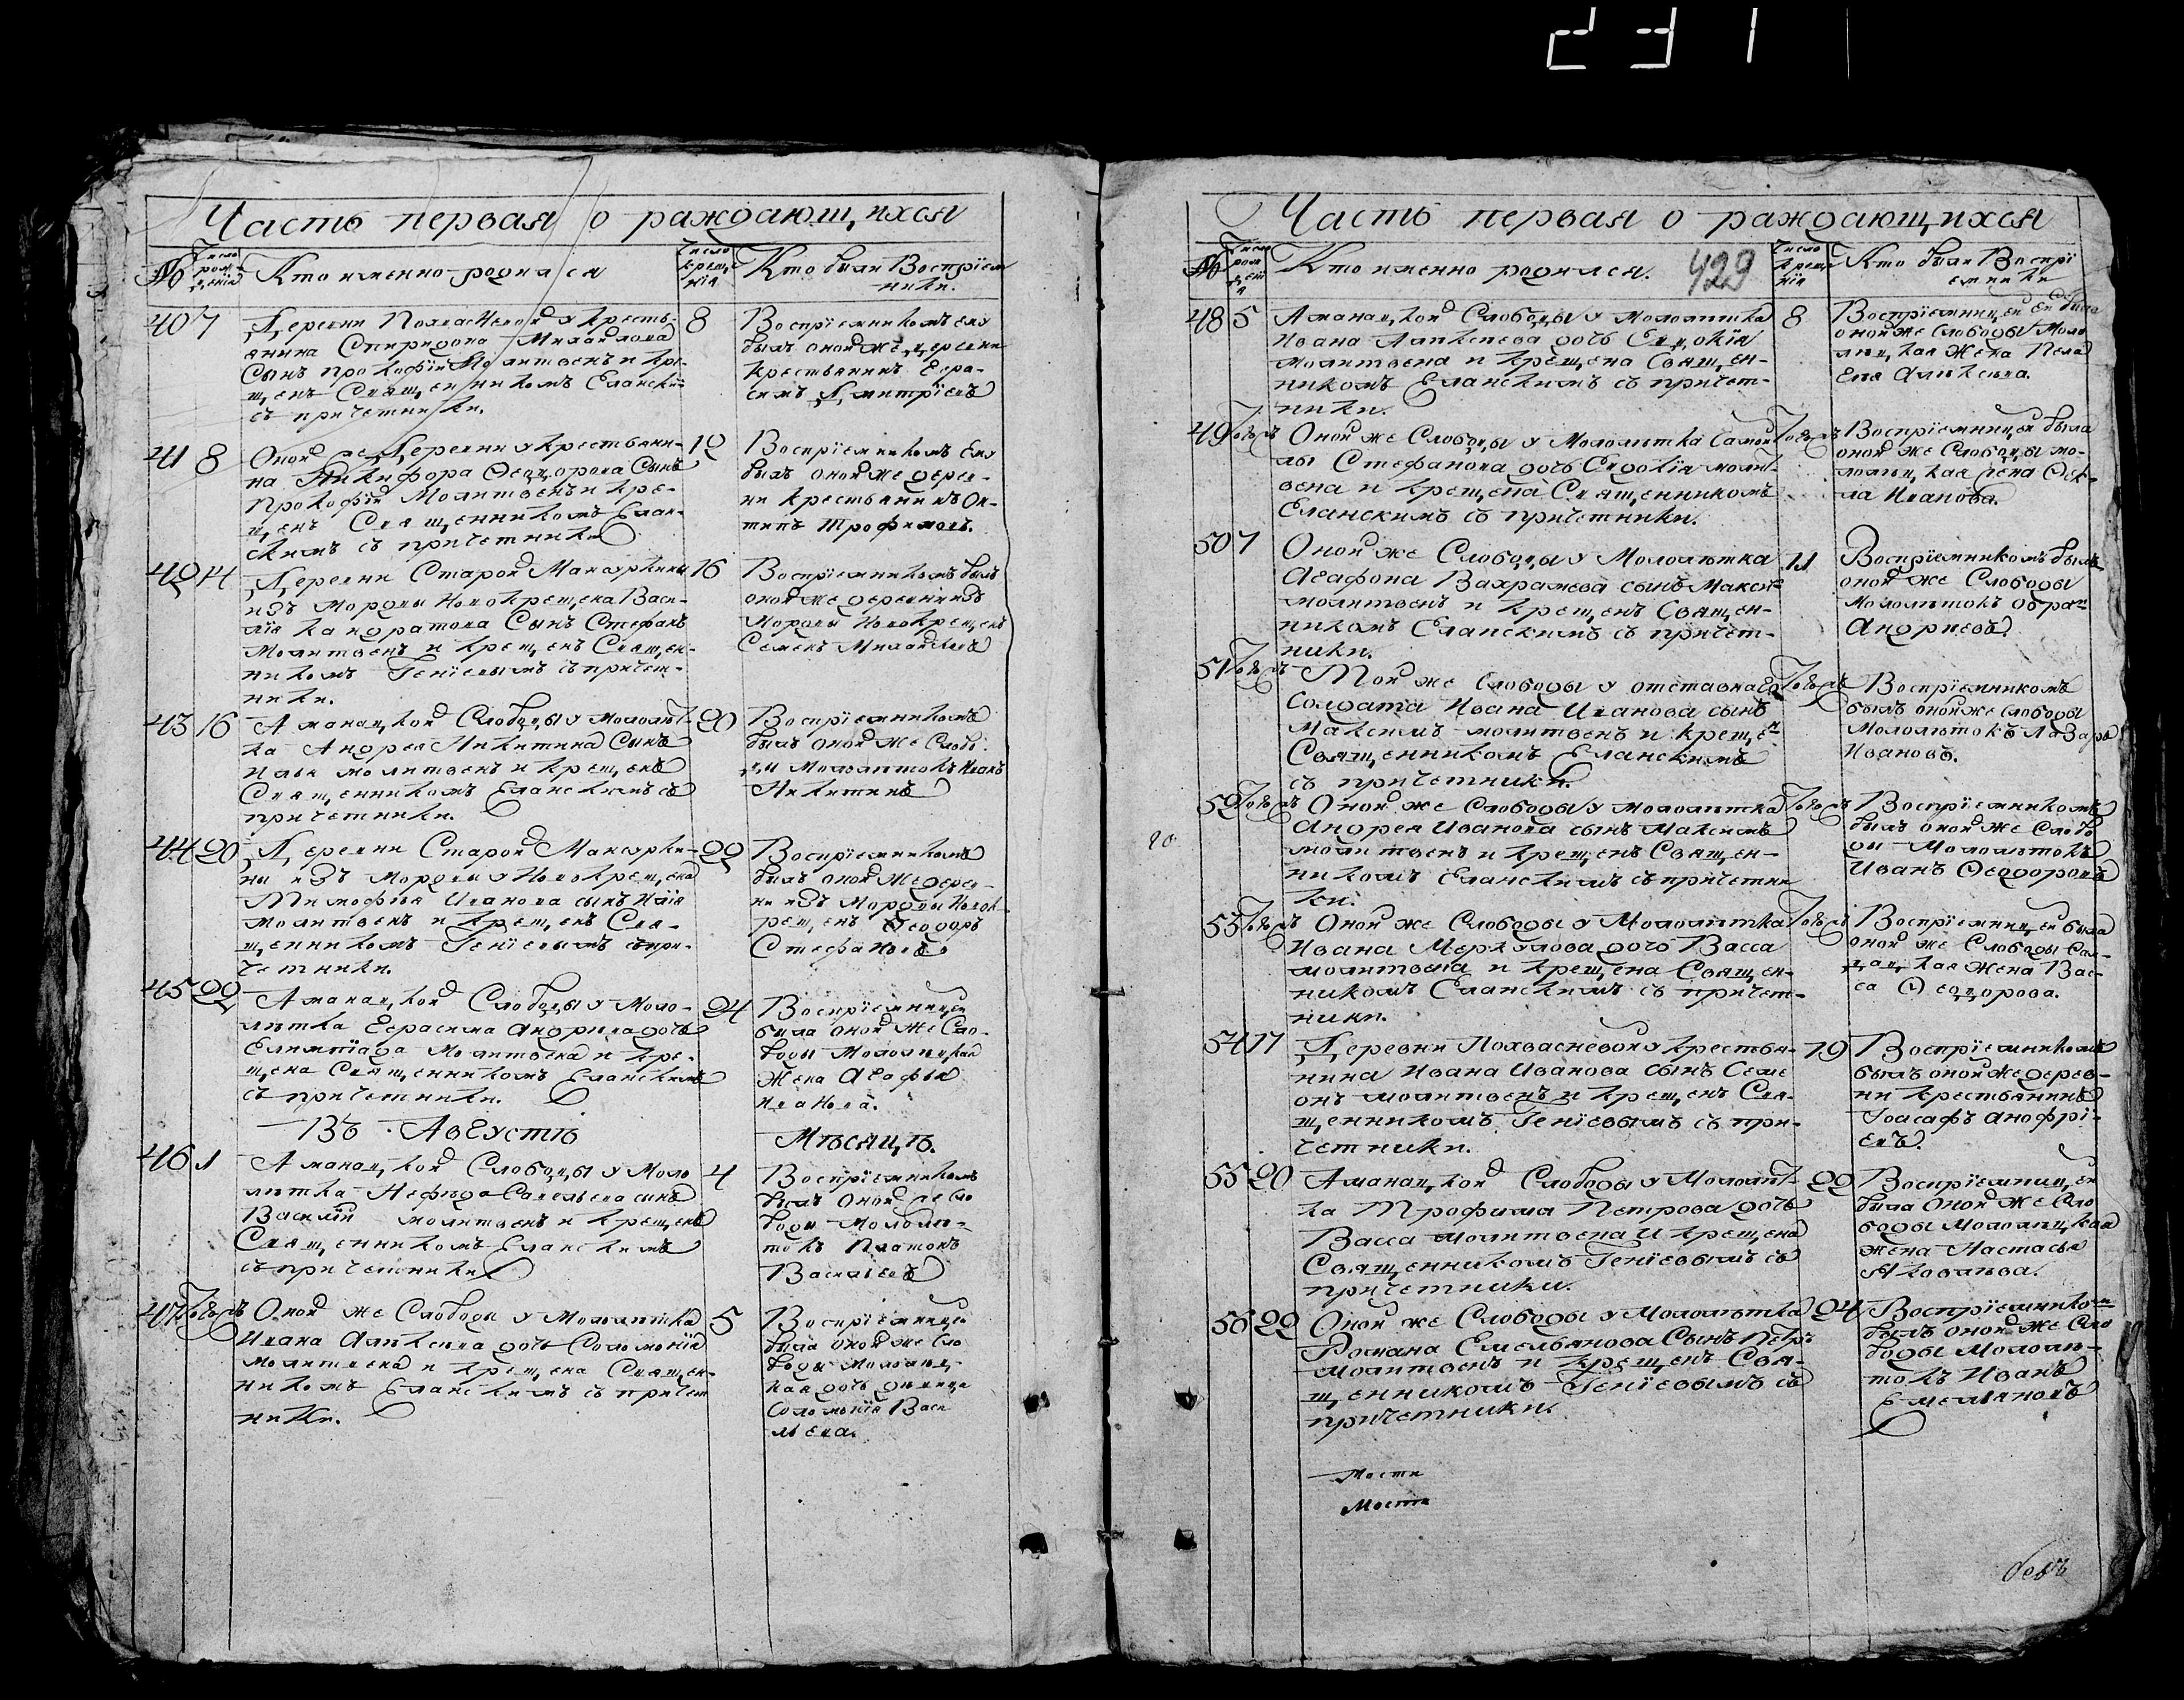 231
Часть первая о раждающихся
№
Число рожденія
Кто именно родился
Число крещенія
Кто были Воспріем
ники.
40 7
Деревни Похвасневой у кресть-
янина Спиридона Михайлова
Сынъ прокофій Молитвенъ и кре-
щенъ Священникомъ Еланским
съ причетники.
8
Воспріемникомъ ему
былъ оной же деревни
крестьянинъ Гера-
симъ Дмитріевъ
41 8
Оной же Деревни у крестьяни-
на Никифора Ѳедорова Сынъ
Прокофій Молитвенъ и кре-
щенъ Священникомъ Елан-
скимъ съ причетники
12
Воспріемникомъ Ему
былъ оной же дерев-
ни крестьянинъ Он-
типъ Трофимовъ.
42 14
Деревни Старой Мачуркины
изъ Мордвы Новокрещена Васи-
лія Кандратова Сынъ Стефанъ
Молитвенъ и крещенъ Священ-
никомъ Геніевымъ съ причет-
ники.
16
Воспріемникомъ былъ
оной же деревни изъ
Мордвы Новокрещенъ
Семенъ Михайловъ
43 16
Аманацкой Слободы у мололѣт-
ка Андрея Никитина Сынъ
Илья молитвенъ и крещенъ
Священникомъ Еланскимъ съ
причетники.
20
Воспріемникомъ
былъ оной же Слобо
ды Мололѣтокъ Иванъ
Никитинъ
44 20
Деревни Старой Мачурки-
ны изъ Мордвы у Новокрещена
Тимофея Иванова сынъ Илія
молитвенъ и крещенъ Свя-
щенникомъ Геніевымъ съ при-
четники.
22
Воспріемникомъ
былъ оной же дерев-
ни изъ Мордвы Новок-
рещенъ Ѳеодоръ
Стефановъ
45 22
Аманацкой Слободы у Моло-
лѣтка Герасима Андриева дочь
Елимпіада Молитвена и кре-
щена Священникомъ Еланскимъ
съ причетники.
24
Воспріемницею
была оной же Сло-
боды Мололяцкая
жена Агафья
Иванова.
Въ Августѣ
Мѣсяцѣ.
46 1
Аманацкой Слободы у Моло
лѣтка Нефеда Савельева сынъ
Василій молитвенъ и крещенъ
Священникомъ Еланскимъ
съ причетники
4
Воспріемникомъ
былъ оной же Сло
боды Мололя-
токъ Платонъ
Васильевъ
47 Тогожъ
Оной же Слободы у Мололѣтка
Ивана Алѣксева дочь Соломонія
молитвена и крещена Священ-
никомъ Еланскимъ съ причет
ники.
5
Воспріемницею
была оной же Сло
боды Мололяц-
кая дочь девица
Соломонія Васи
льева.
Часть первая о раждающихся
№
Число рожденія
Кто именно родился.
429
Число крещенія
Кто были Воспрі
емники
48 5
Аманацкой Слободы у Мололѣтка
Ивана Алѣксева дочь Евдокія
молитвена и крещена Священ-
никомъ Еланскимъ съ причет-
ники.
8
Воспріемницей ей была
оной же Слободы Моло
ляцкая жена Пела
гея Алѣксева.
49 Тогожъ
Оной же Слободы у Мололѣтка Самой
лы Стефанова дочь Евдокія моли-
вена и крещена Священникомъ
Еланскимъ съ причетники.
Тогожъ
Воспріемницей была
оной же Слободы мо-
лоляцкая жена Ѳек-
ла Иванова.
50 7
Оной же Слободы у Мололѣтка
Агафона Вахрамева сынъ Максимъ
молитвенъ и крещенъ Священ-
никомъ Еланскимъ съ причет-
ники.
11
Воспріемникомъ былъ
оной же Слободы
Мололѣтокъ
Андриевъ
51 Тогожъ
Той же Слободы у отставнаго
Солдата Ивана Иванова сынъ
Максимъ молитвенъ и крещенъ
Священникомъ Еланскимъ
съ причетники.
Тогожъ
Воспріемникомъ
былъ оной же Слободы
Мололѣтокъ Лазарь
Ивановъ.
52 Тогожъ
Оной же Слободы у мололѣтка
Андрея Иванова сынъ Максимъ
молитвенъ и крещенъ Священ-
никомъ Еланскимъ съ причетни
ки.
Тогожъ
Воспріемникомъ
былъ оной же Слобо
ды Мололѣтокъ
Иванъ Ѳеодоровъ
53 Тогожъ
Оной же Слободы у Мололѣтка
Ивана Меркулова дочь Васса
молитвена и крещена Священ-
никомъ Еланскимъ съ причет-
ники.
Тогожъ
Воспріемницей была
оной же Слободы Сол-
дацкая жена Вас-
са Ѳеодорова.
54 17
Деревни Похвасневой у крестья-
нина Ивана Иванова сынъ Семе
онъ молитвенъ и крещенъ Свя-
щенникомъ Геніевымъ съ при-
четники.
19
Воспріемникомъ
былъ оной же дерев-
ни крестьянинъ
Іоасафъ Анофрі-
евъ.
55 20
Аманацкой Слободы у Мололѣт-
ка Трофима Петрова дочь
Васса молитвена и крещена
Священникомъ Геніевымъ съ
причетники.
22
Воспріемницей
была оной же Сло
боды Мололяцкая
жена Настасья
Яковлева.
56 22
Оной же Слободы у Мололѣтка
Романа Емельянова Сынъ Петръ
молитвенъ и крещенъ Свя-
щенникомъ Геніевымъ съ
причетники.
24
Воспріемникомъ
былъ оной же Сло
боды Мололя-
токъ Иванъ
Емельяновъ